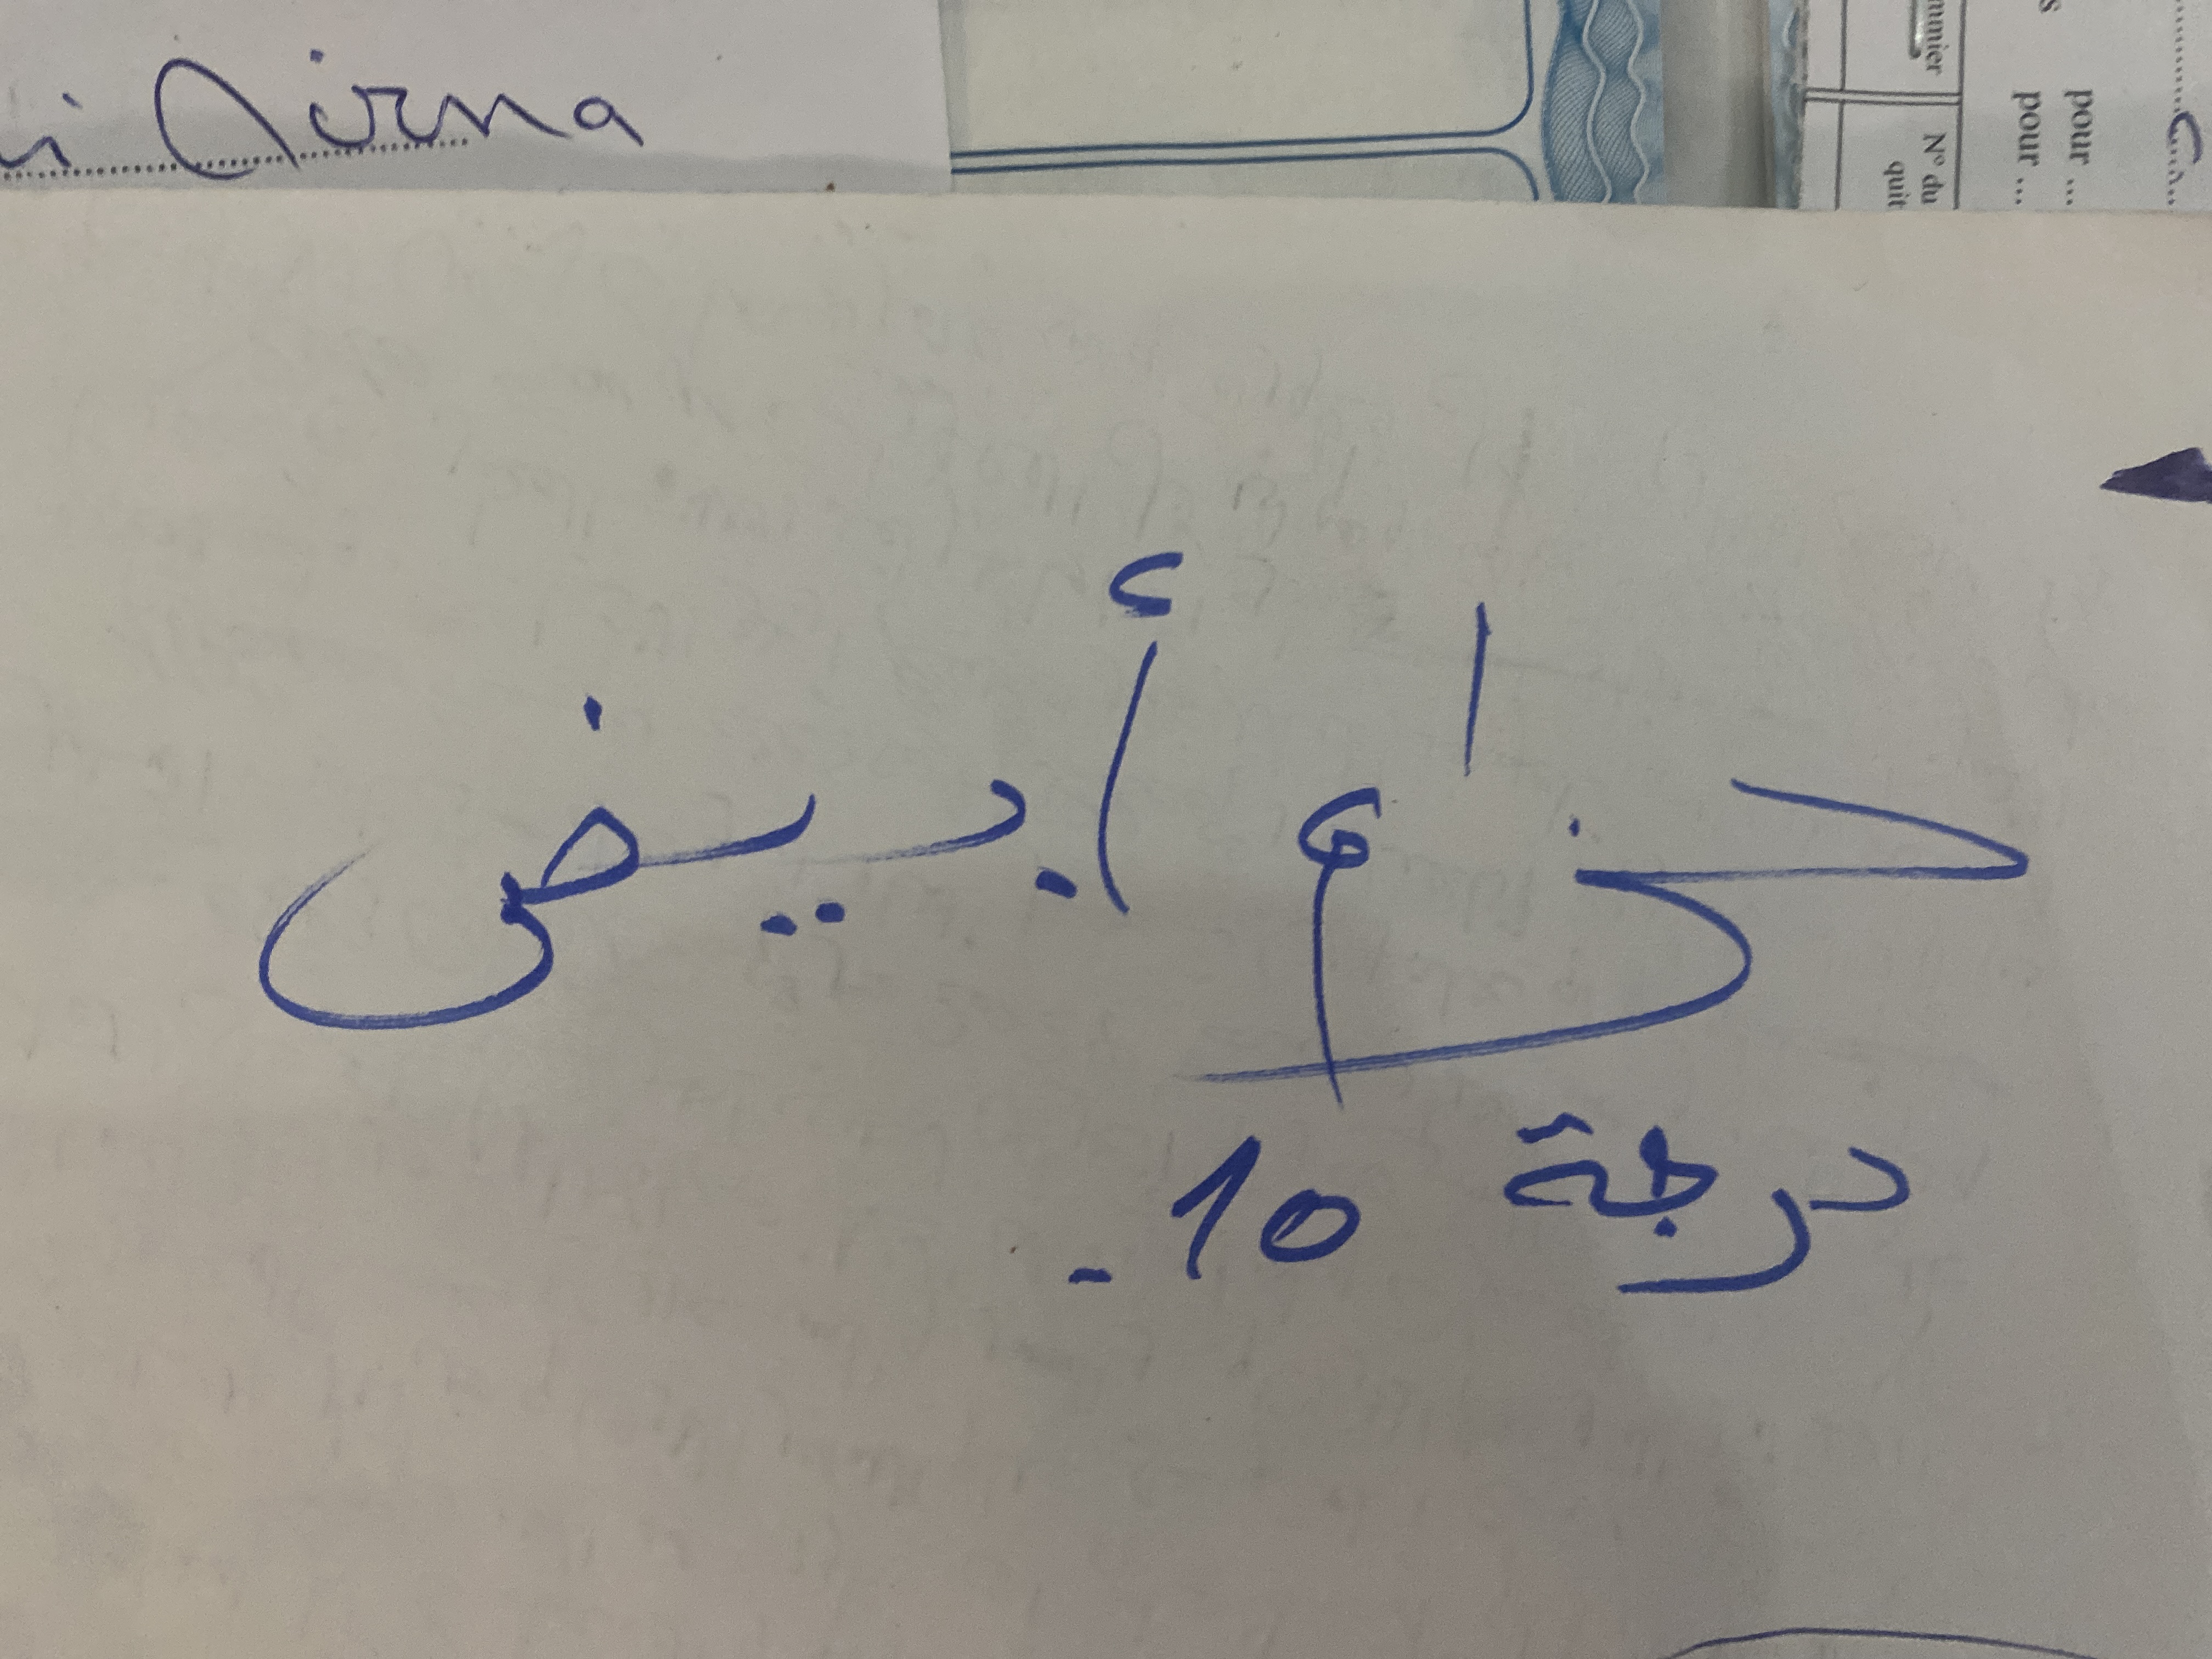 Sirna
mmier
N° du
quit
pour ...
pour ...
حزام أبيض
درجة 10.